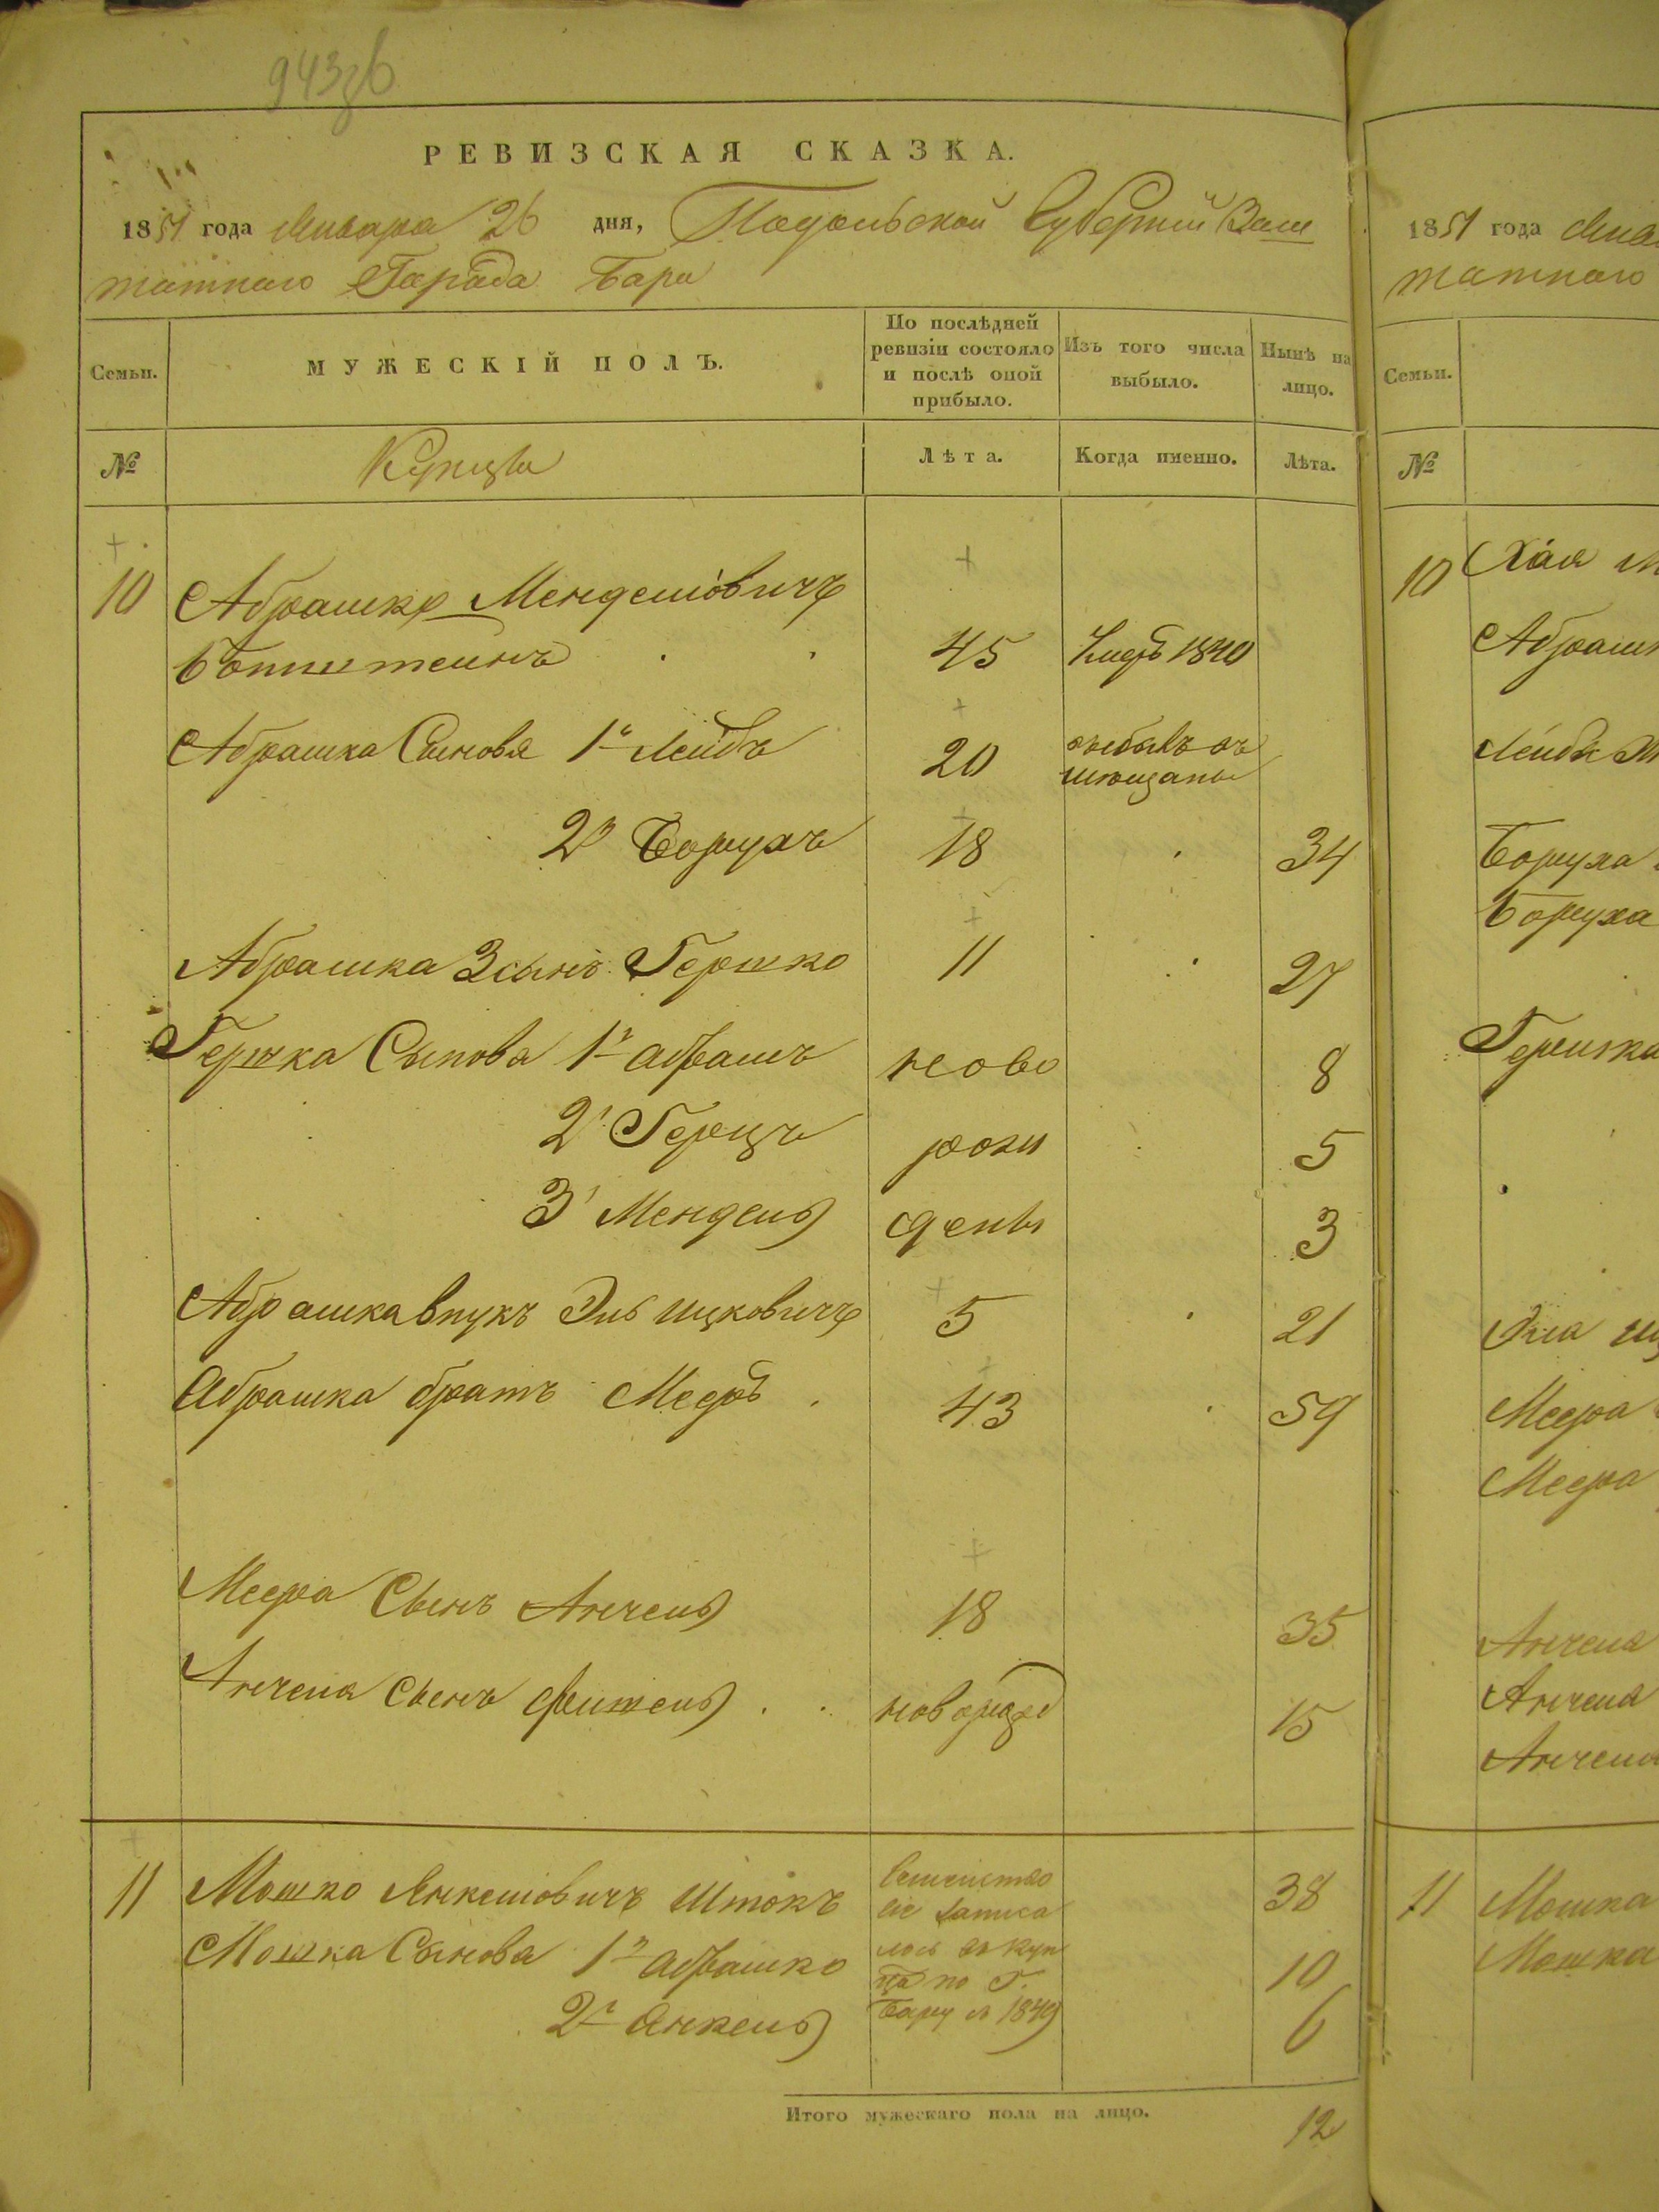 943
РЕВИЗСКАЯ СКАЗКА.
1851 года Января 26 дня, Подольской Губернии Заш
татнаго Города Бара
Семьи.
МУЖЕСКІЙ ПОЛЪ.
По послѣдней ревизіи состояло и послѣ оной прибыло.
Изъ того числа выбыло.
Нынѣ на лицо.
№
Купцы
Лѣта.
Когда именно.
Лѣта.
10 Абрашко Менделіовичъ
45 1840
Абрашка Сыновя 1й Лейбъ 20 выбылъ въ мѣщаны
2й Борухъ 18 34
Абрашка 3 сынъ Гершко 11 27
Гершка Сыновя 1й Абрашъ ново 8
2й Герцъ рож 5
3й Мендель денъ 3
Абрашка внукъ Эль Ицковичъ 5 21
Абрашка братъ Мееръ 43 59
Меера Сынъ Анчель 18 35
Анчеля Сынъ Фишель новорожд 15
11 Мошко Янкеліовичъ Штокъ Семейство 38
сіе записа
Мошка Сыновя 1й Абрашко лось въ куп 10
по Г.
2й Янкель Бару в 1849 6
Итого мужескаго пола на лицо. 12
1851 года Янва
татнаго
Семьи.
№
10 Хая
Абрашк
Лейбы
Боруха
Боруха
Гершка
Эля Иц
Меера
Меера
Анчеля
Анчеля
Анчеля
11 Мошка
Мошка